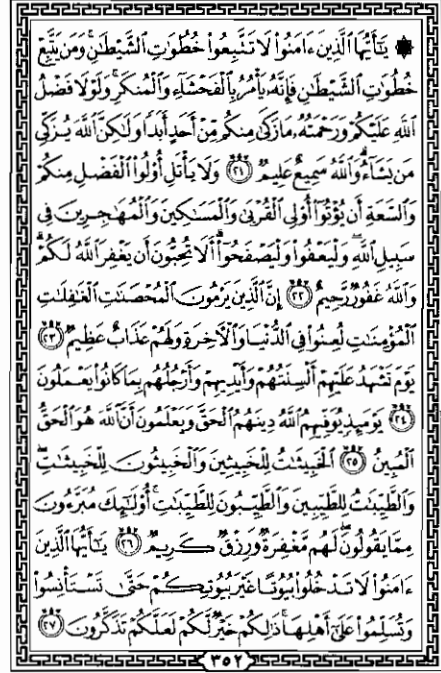 ۞ يَـٰٓأَيُّهَا ٱلَّذِينَ ءَامَنُوا۟ لَا تَتَّبِعُوا۟ خُطُوَٰتِ ٱلشَّيْطَـٰنِ ۚ وَمَن يَتَّبِعْ
خُطُوَٰتِ ٱلشَّيْطَـٰنِ فَإِنَّهُۥ يَأْمُرُ بِٱلْفَحْشَآءِ وَٱلْمُنكَرِ ۚ وَلَوْلَا فَضْلُ
ٱللَّهِ عَلَيْكُمْ وَرَحْمَتُهُۥ مَا زَكَىٰ مِنكُم مِّنْ أَحَدٍ أَبَدًا وَلَـٰكِنَّ ٱللَّهَ يُزَكِّى
مَن يَشَآءُ ۗ وَٱللَّهُ سَمِيعٌ عَلِيمٌ ٢١ وَلَا يَأْتَلِ أُو۟لُوا۟ ٱلْفَضْلِ مِنكُمْ
وَٱلسَّعَةِ أَن يُؤْتُوٓا۟ أُو۟لِى ٱلْقُرْبَىٰ وَٱلْمَسَـٰكِينَ وَٱلْمُهَـٰجِرِينَ فِى
سَبِيلِ ٱللَّهِ ۖ وَلْيَعْفُوا۟ وَلْيَصْفَحُوٓا۟ ۗ أَلَا تُحِبُّونَ أَن يَغْفِرَ ٱللَّهُ لَكُمْ ۗ
وَٱللَّهُ غَفُورٌ رَّحِيمٌ ٢٢ إِنَّ ٱلَّذِينَ يَرْمُونَ ٱلْمُحْصَنَـٰتِ ٱلْغَـٰفِلَـٰتِ
ٱلْمُؤْمِنَـٰتِ لُعِنُوا۟ فِى ٱلدُّنْيَا وَٱلْـَٔاخِرَةِ وَلَهُمْ عَذَابٌ عَظِيمٌ ٢٣
يَوْمَ تَشْهَدُ عَلَيْهِمْ أَلْسِنَتُهُمْ وَأَيْدِيهِمْ وَأَرْجُلُهُم بِمَا كَانُوا۟ يَعْمَلُونَ
٢٤ يَوْمَئِذٍ يُوَفِّيهِمُ ٱللَّهُ دِينَهُمُ ٱلْحَقَّ وَيَعْلَمُونَ أَنَّ ٱللَّهَ هُوَ ٱلْحَقُّ
ٱلْمُبِينُ ٢٥ ٱلْخَبِيثَـٰتُ لِلْخَبِيثِينَ وَٱلْخَبِيثُونَ لِلْخَبِيثَـٰتِ ۖ
وَٱلطَّيِّبَـٰتُ لِلطَّيِّبِينَ وَٱلطَّيِّبُونَ لِلطَّيِّبَـٰتِ ۚ أُو۟لَـٰٓئِكَ مُبَرَّءُونَ
مِمَّا يَقُولُونَ ۖ لَهُم مَّغْفِرَةٌ وَرِزْقٌ كَرِيمٌ ٢٦ يَـٰٓأَيُّهَا ٱلَّذِينَ
ءَامَنُوا۟ لَا تَدْخُلُوا۟ بُيُوتًا غَيْرَ بُيُوتِكُمْ حَتَّىٰ تَسْتَأْنِسُوا۟
وَتُسَلِّمُوا۟ عَلَىٰٓ أَهْلِهَا ۚ ذَٰلِكُمْ خَيْرٌ لَّكُمْ لَعَلَّكُمْ تَذَكَّرُونَ ٢٧
٣٥٢